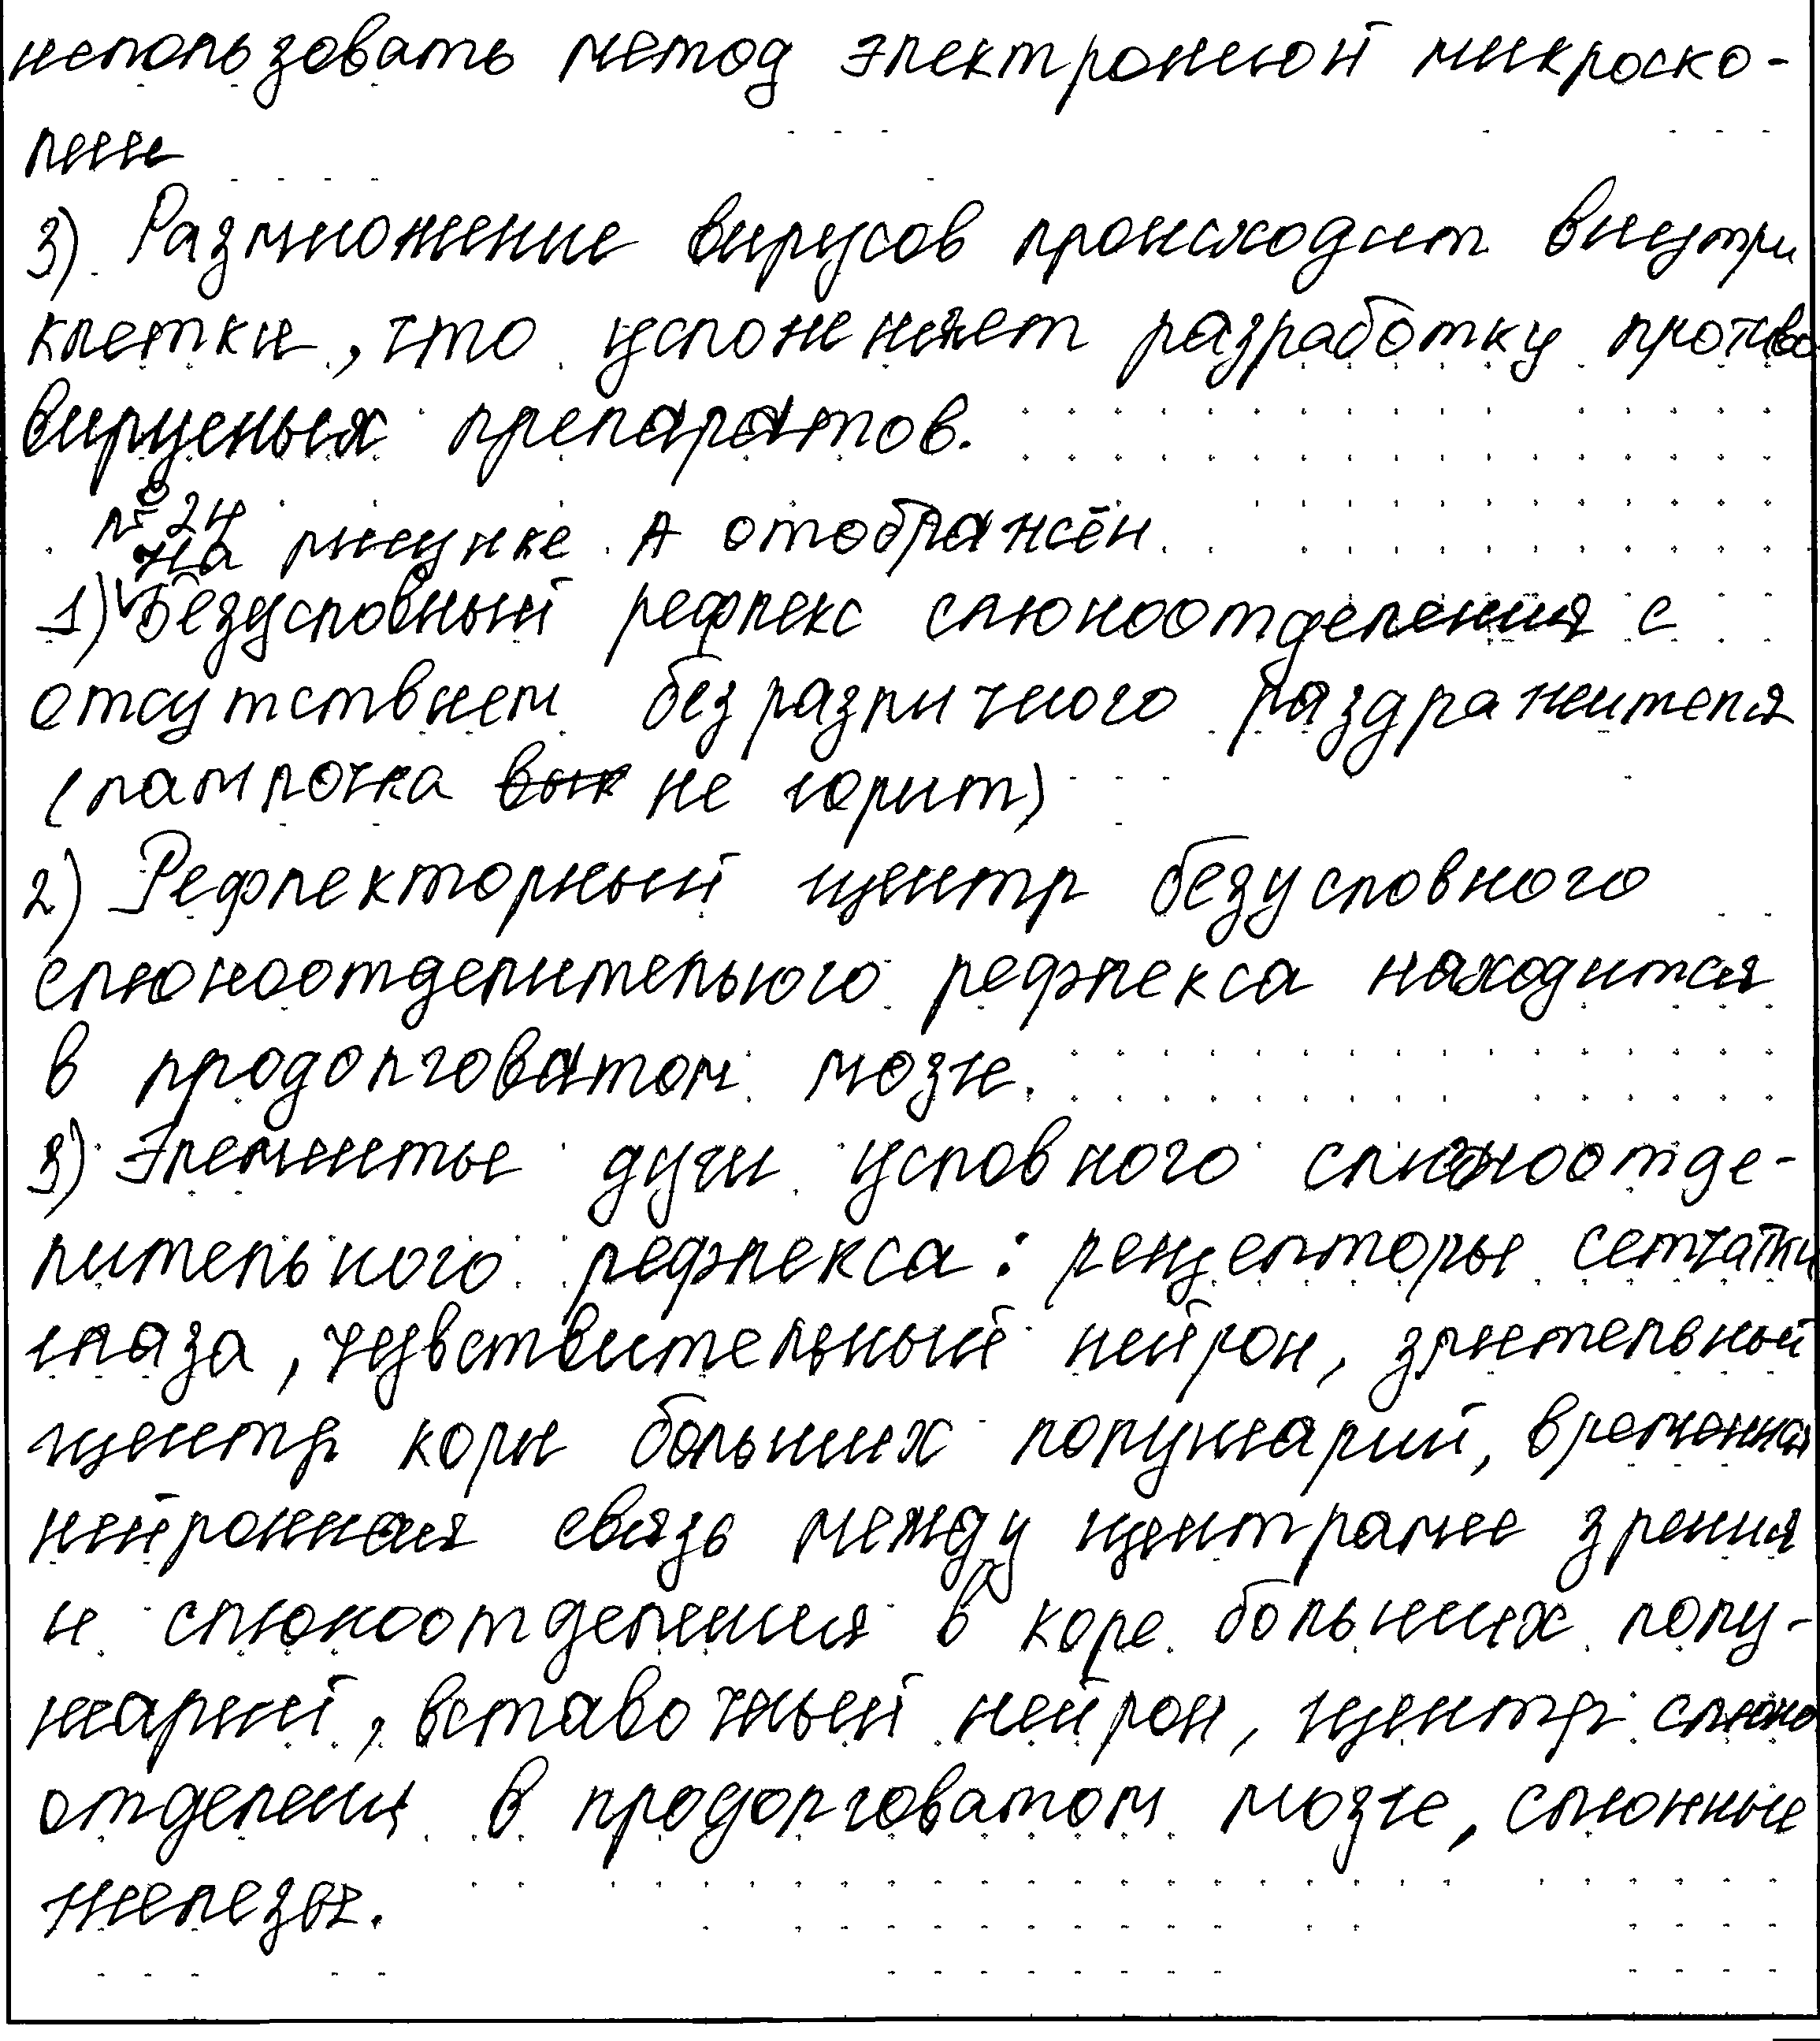 использовать метод электронной микроско-
пии
3) Размножение вирусов происходит внутри
клетки, что усложняет разработку противо
вирусных препаратов.
№24
На рисунке А отображён
1) Безусловный рефлекс слюноотделения с
отсутствием безразличного раздражителя
(лампочка вык не горит)
2) Рефлекторный центр безусловного
слюноотделительного рефлекса находится
в продолговатом мозге.
3) Элементы дуги условного слюноотде-
лительного рефлекса: рецепторы сетчатки
глаза, чувствительный нейрон, зрительный
центр коры больших полушарий, временная
нейронная связь между центрами зрения
и слюноотделения в коре больших полу-
шарий, вставочный нейрон, центр слюно
отделени в продолговатом мозге, слюнные
железы.